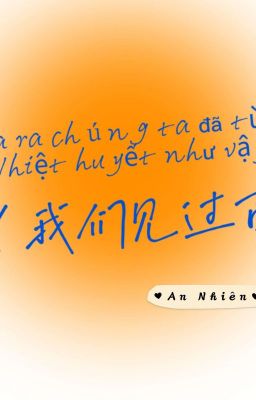 a ra chúng ta đã từ
Nhiệt huyết như vậy
我们见过
♥ An Nhiên ♥